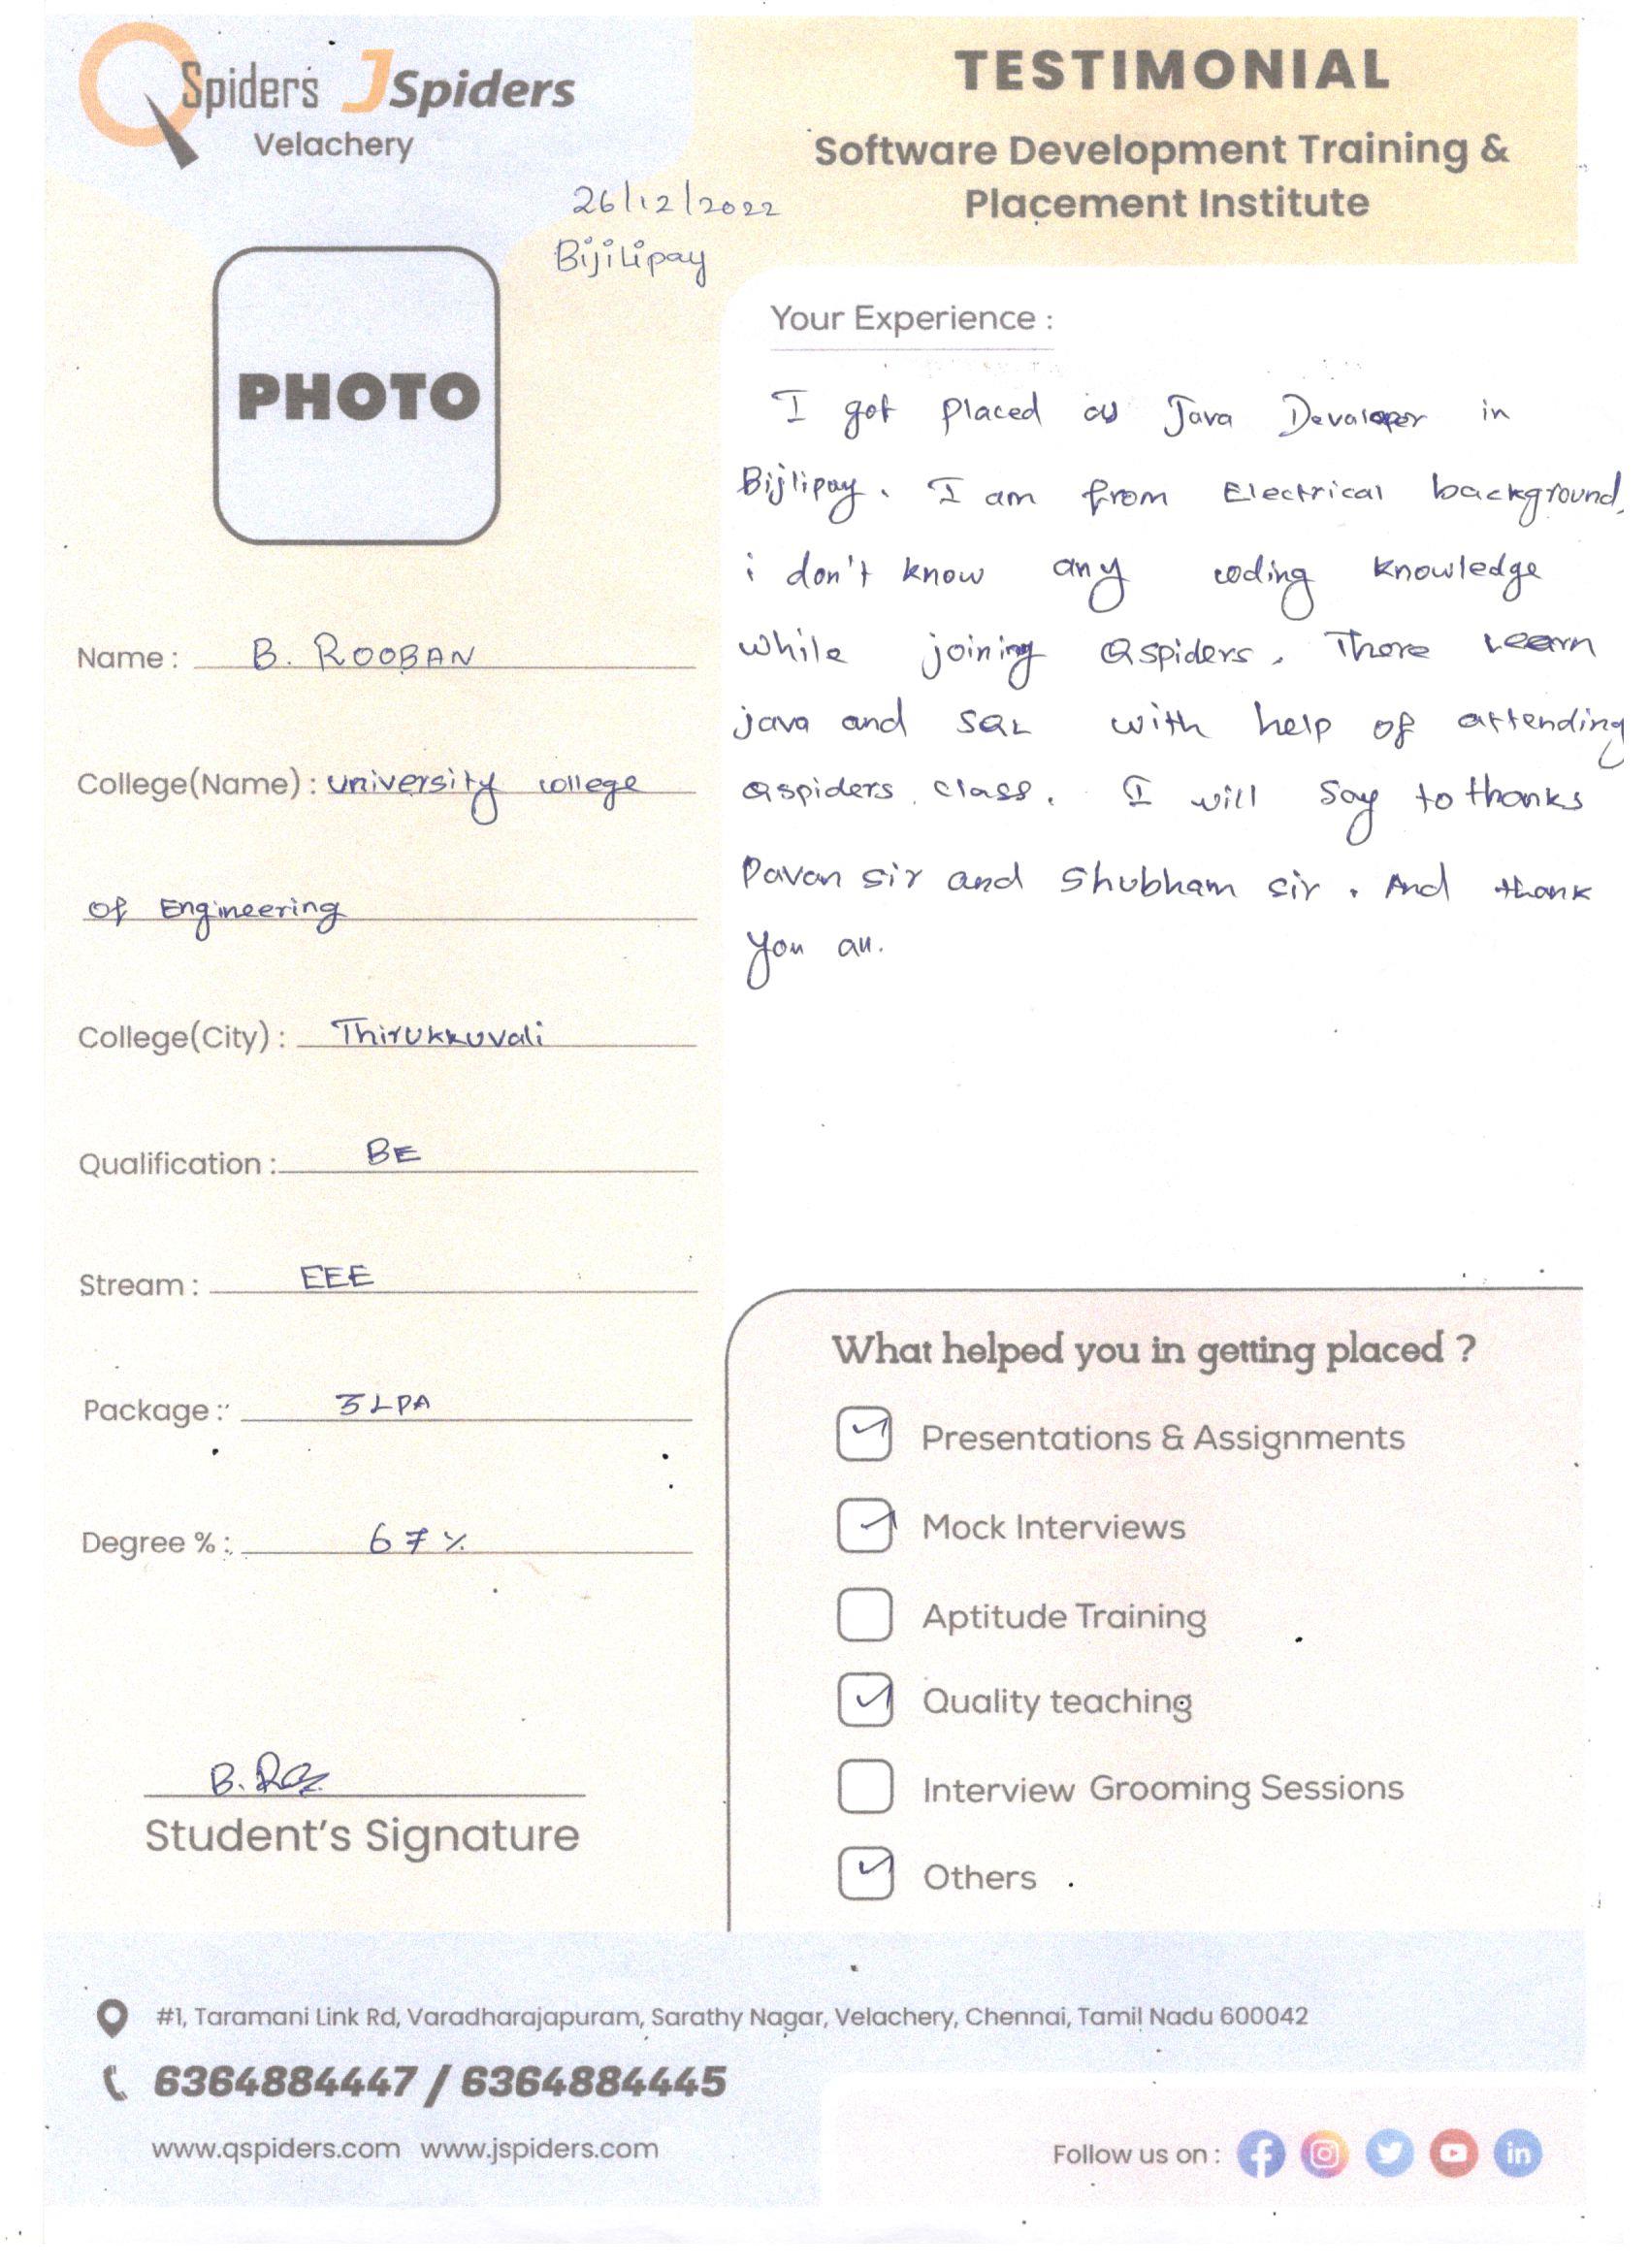 QSpiders JSpiders
Velachery
TESTIMONIAL
Software Development Training &
Placement Institute
26/12/2022
Bijilipay
PHOTO
Name : B. ROOBAN
College(Name) : university college
of Engineering
College(City) : Thirukkuvali
Qualification : BE
Stream : EEE
Package : 3LPA
Degree % : 67%
B.
Student's Signature
Your Experience :
I got placed as Java Devaloper in
Bijlipay. I am from Electrical background,
i don't know any coding knowledge
while joining Qspiders. There Learn
java and SQL with help of attending
Qspiders class. I will say to thanks
Pavan sir and Shubham sir. And thank
you all.
What helped you in getting placed ?
Presentations & Assignments
Mock Interviews
Aptitude Training
Quality teaching
Interview Grooming Sessions
Others
#1, Taramani Link Rd, Varadharajapuram, Sarathy Nagar, Velachery, Chennai, Tamil Nadu 600042
6364884447 / 6364884445
www.qspiders.com www.jspiders.com
Follow us on :